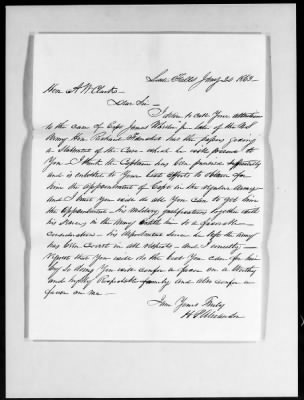 Little Falls Jany 20 1863
Hon A W Clark
Dear Sir
I desire to call your attention
to the case of Capt James late of the U S
Army Hon Richard has the papers giving
a Statement of the Case which he will present to
You I think the Captain has been punished
and is entitled to Your best efforts to obtain for
him the appointment of Capt in the regular Army
and I trust you will do all you can to get him
the appointment his military qualifications together with
his Services in the Army him to a favorable
consideration his deportment since he left the army
has been correct in all respects and I earnestly
request that you will do the best You can for him
by so doing You will confer a favor on a worthy
and highly Respectable family and also confer a
favor on me
I am Yours Truly
H P Alexander